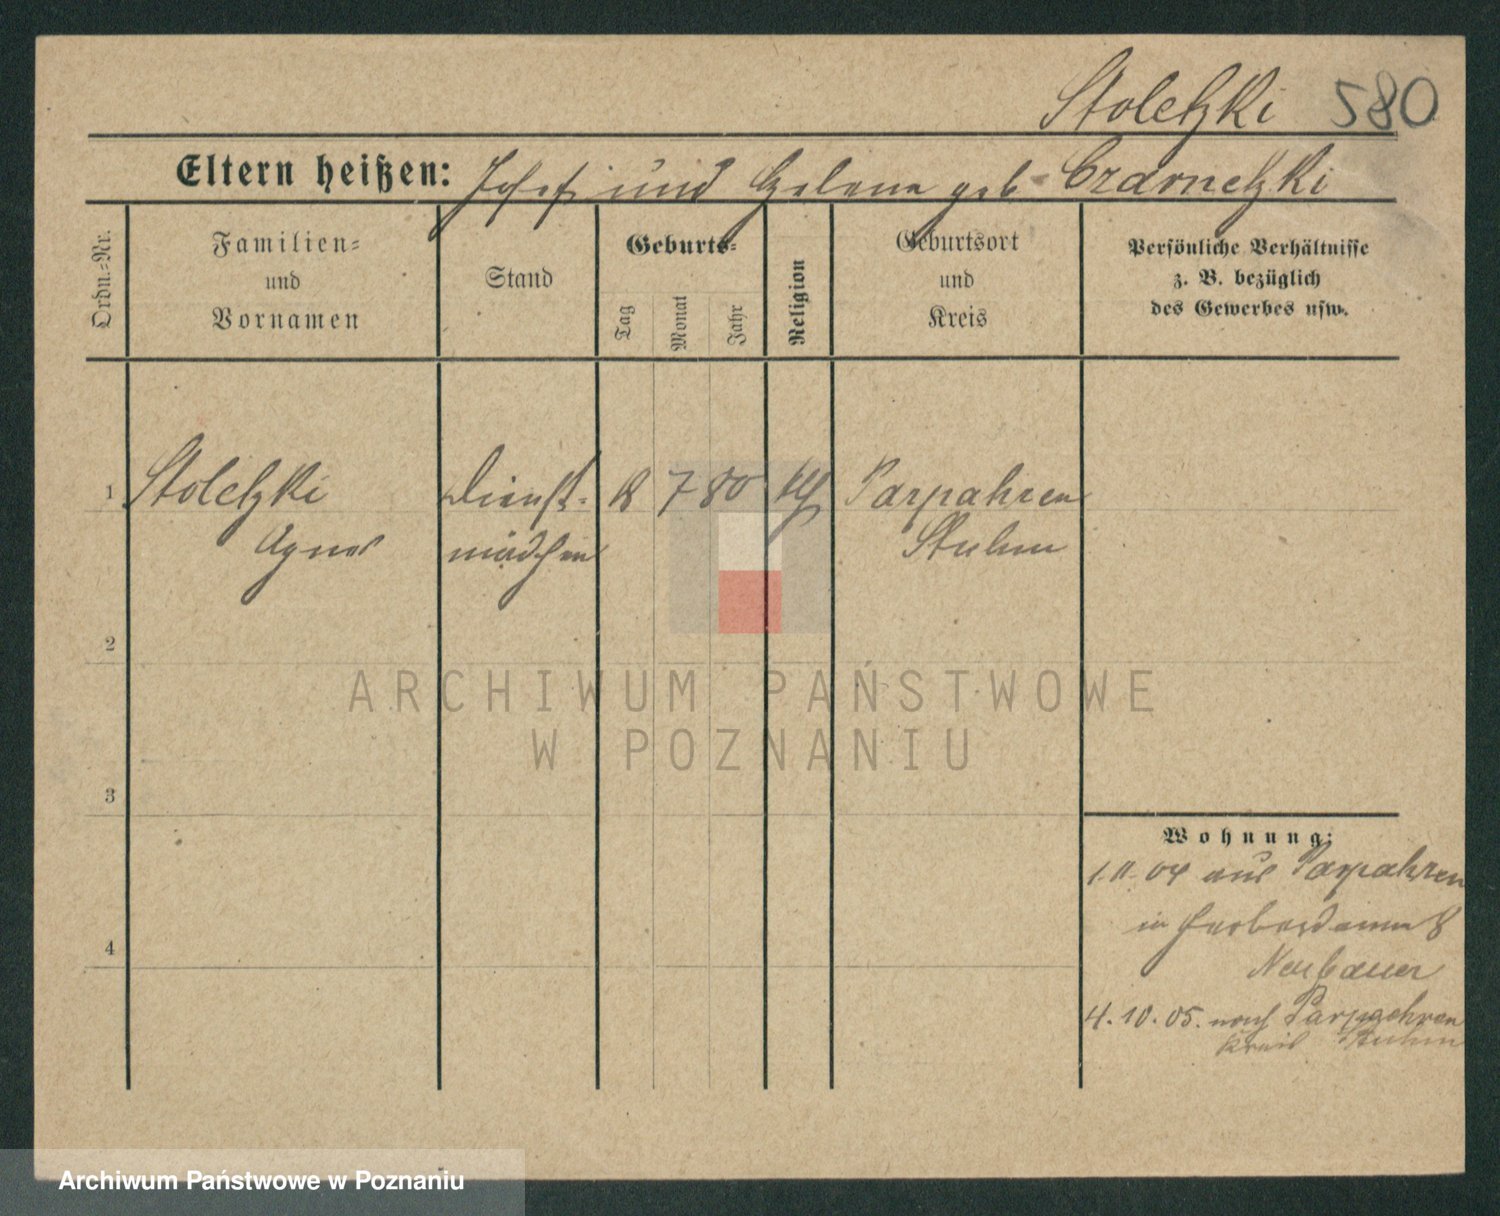 Stoletzki 580
Eltern heißen: Josef und Helene geb. Czarnetzki
Ordn.=Nr.
Familien=
und
Vornamen
Stand
Geburts=
Tag
Monat
Jahr
Religion
Geburtsort
und
Kreis
Persönliche Verhältnisse
z. B. bezüglich
des Gewerbes usw.
1 Stoletzki Dienst= 7 80 kth Parpahren
Agnes mädchen Stuhm
2
ARCHIWUM PAŃSTWOWE
W POZNANIU
3
Wohnung:
1.11.04 aus Parpahren
in Gerberdamm 8
4
Neubauer
4.10.05. nach Parpahren
Kreis Stuhm
Archiwum Państwowe w Poznaniu